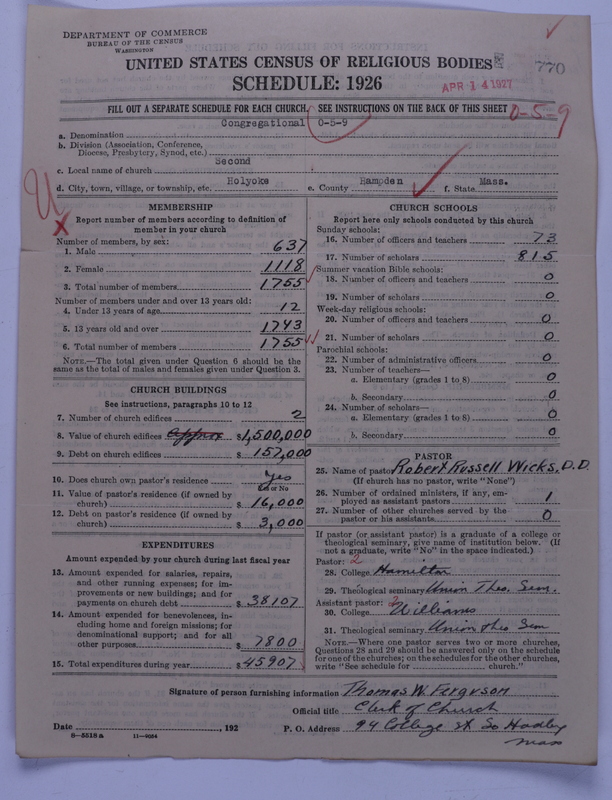 DEPARTMENT OF COMMERCE
BUREAU OF THE CENSUS
WASHINGTON
UNITED STATES CENSUS OF RELIGIOUS BODIES
770
SCHEDULE: 1926
APR 14 1927
FILL OUT A SEPARATE SCHEDULE FOR EACH CHURCH. SEE INSTRUCTIONS ON THE BACK OF THIS SHEET
0-5-9
a. Denomination Congregational 0-5-9
b. Division (Association, Conference,
Diocese, Presbytery, Synod, etc.)
c. Local name of church Second
d. City, town, village, or township, etc. Holyoke e. County Hampden f. State Mass.
MEMBERSHIP
Report number of members according to definition of
member in your church
Number of members, by sex:
1. Male 637
2. Female 1118
3. Total number of members 1755
Number of members under and over 13 years old:
4. Under 13 years of age 12
5. 13 years old and over 1743
6. Total number of members 1755
NOTE.—The total given under Question 6 should be the
same as the total of males and females given under Question 3.
CHURCH BUILDINGS
See instructions, paragraphs 10 to 12
7. Number of church edifices 2
8. Value of church edifices approx $1,500,000
9. Debt on church edifices $157,000
10. Does church own pastor's residence Yes
Yes or No
11. Value of pastor's residence (if owned by
church) $16,000
12. Debt on pastor's residence (if owned by
church) $3,000
EXPENDITURES
Amount expended by your church during last fiscal year
13. Amount expended for salaries, repairs,
and other running expenses; for im-
provements or new buildings; and for
payments on church debt $38107
14. Amount expended for benevolences, in-
cluding home and foreign missions; for
denominational support; and for all
other purposes $7800
15. Total expenditures during year $45907
CHURCH SCHOOLS
Report here only schools conducted by this church
Sunday schools:
16. Number of officers and teachers 73
17. Number of scholars 815
Summer vacation Bible schools:
18. Number of officers and teachers 0
19. Number of scholars 0
Week-day religious schools:
20. Number of officers and teachers 0
21. Number of scholars 0
Parochial schools:
22. Number of administrative officers 0
23. Number of teachers—
a. Elementary (grades 1 to 8) 0
b. Secondary 0
24. Number of scholars—
a. Elementary (grades 1 to 8) 0
b. Secondary 0
PASTOR
25. Name of pastor Robert Russell Wicks, D.D.
(If church has no pastor, write "None")
26. Number of ordained ministers, if any, em-
ployed as assistant pastors 1
27. Number of other churches served by the
pastor or his assistants 0
If pastor (or assistant pastor) is a graduate of a college or
theological seminary, give name of institution below. (If
not a graduate, write "No" in the space indicated.)
Pastor: 2
28. College Hamilton
29. Theological seminary Union Theo. Sem.
Assistant pastor: 2
30. College Williams
31. Theological seminary Union Theo Sem
NOTE.—Where one pastor serves two or more churches,
Questions 28 and 29 should be answered only on the schedule
for one of the churches; on the schedules for the other churches,
write "See schedule for church."
Signature of person furnishing information Thomas W. Ferguson
Official title Clerk of Church
Date , 192 P. O. Address 94 College St So Hadley
Mass
8—5518a 11—9054